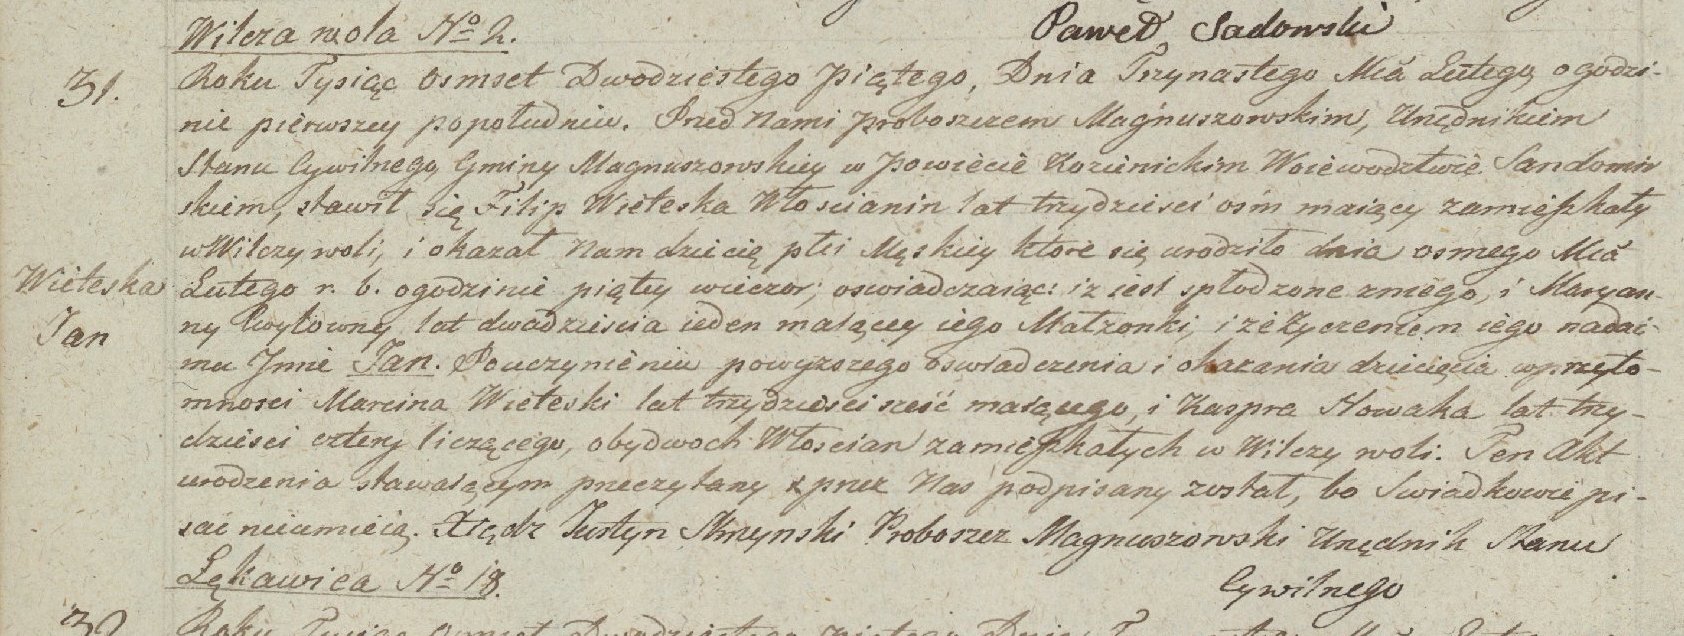 Wilcza wola No 2.
Paweł Sadowski
31.
Roku Tysiąc osmset Dwodziestego piątego, Dnia Trzynastego Mca Lutego ogodzi-
nie pierwszey popołudniu. Przed Nami Proboszczem Magnuszowskim, Urzędnikiem
Stanu Cywilnego Gminy Magnuszowskiey w Powiecie Kozienickim Woiewodztwie Sandomir
skiem, stawił się Filip Wieteska Włoscianin lat trzydziesci ośm maiący zamieszkały
w Wilczy woli, i okazał Nam dziecię płci Męskiey które się urodziło dnia osmego Mca
Wieteska
Jan
Lutego r. b. ogodzinie piątey wieczor; oswiadczaiąc: iz iest spłodzone zniego, i Maryan-
ny Cwyłowny lat dwadziescia ieden maiącey iego Małzonki, i ze zyczeniem iego nadai-
mu Jmie Jan. Pouczynieniu powyzszego oswiadczenia i okazania dziecięcia wprzyto-
mnosci Marcina Wieteski lat trzydziesci szesć maiącego, i Kaspra Nowaka lat trzy-
dziesci cztery liczącego, obydwoch Włoscian zamieszkałych w Wilczy woli. Ten Akt
urodzenia stawaiącym przeczytany i przez Nas podpisany został, bo Swiadkowie pi-
sac nieumieią. Xiądz Justyn Skrzynski Proboszcz Magnuszowski Urzędnik Stanu
Cywilnego
Lękawica No 18.
32
Roku Tysiąc osmset Dwudziestego piątego Dnia